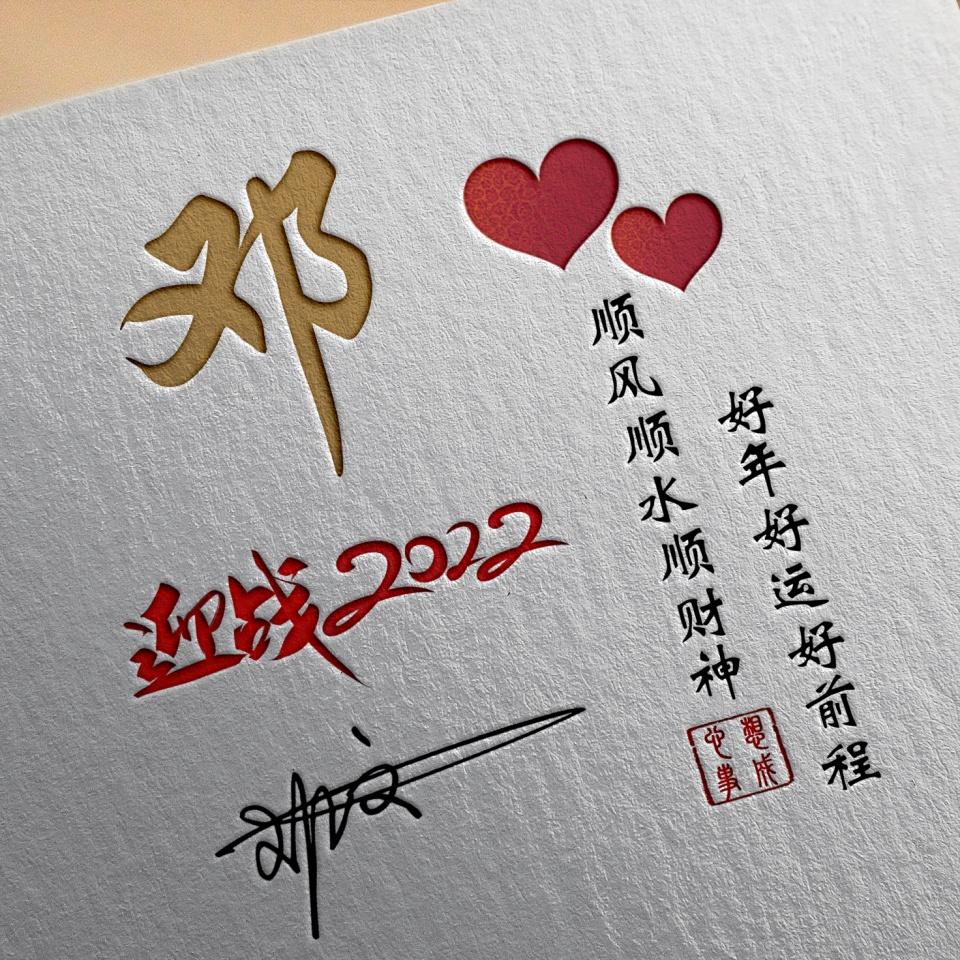 邓
迎战2022
好年好运好前程
顺风顺水顺财神
心想事成